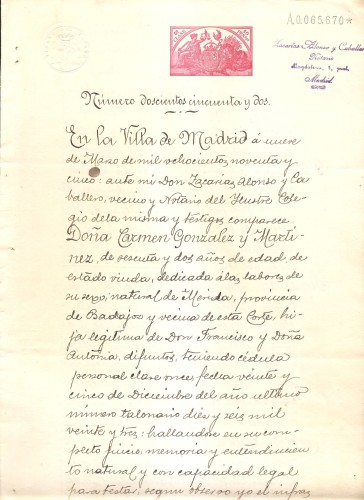 A.0.065.670*
Zacarías Alonso y Caballero
Notario
Madrid
Número doscientos cincuenta y dos.
En la Villa de Madrid á nueve
de Marzo de mil ochocientos noventa y
cinco: ante mi Don Zacarias Alonso y Ca-
ballero, vecino y Notario del Ilustre Cole-
gio de la misma y testigos comparece
Doña Carmen González y Martí-
nez, de sesenta y dos años de edad, de
estado viuda, dedicada á las labores de
su sexo, natural de Mérida, provincia
de Badajoz y vecina de esta Corte, hi-
ja legítima de Don Francisco y Doña
Antonia, difuntos, teniendo cédula
personal clase once, fecha veinte y
cinco de Diciembre del año último
número talonario diez y seis mil
veinte y tres: hallandose en su com-
pleto juicio, memoria y entendimien-
to natural y con capacidad legal
para testar, segun observo yo el infras